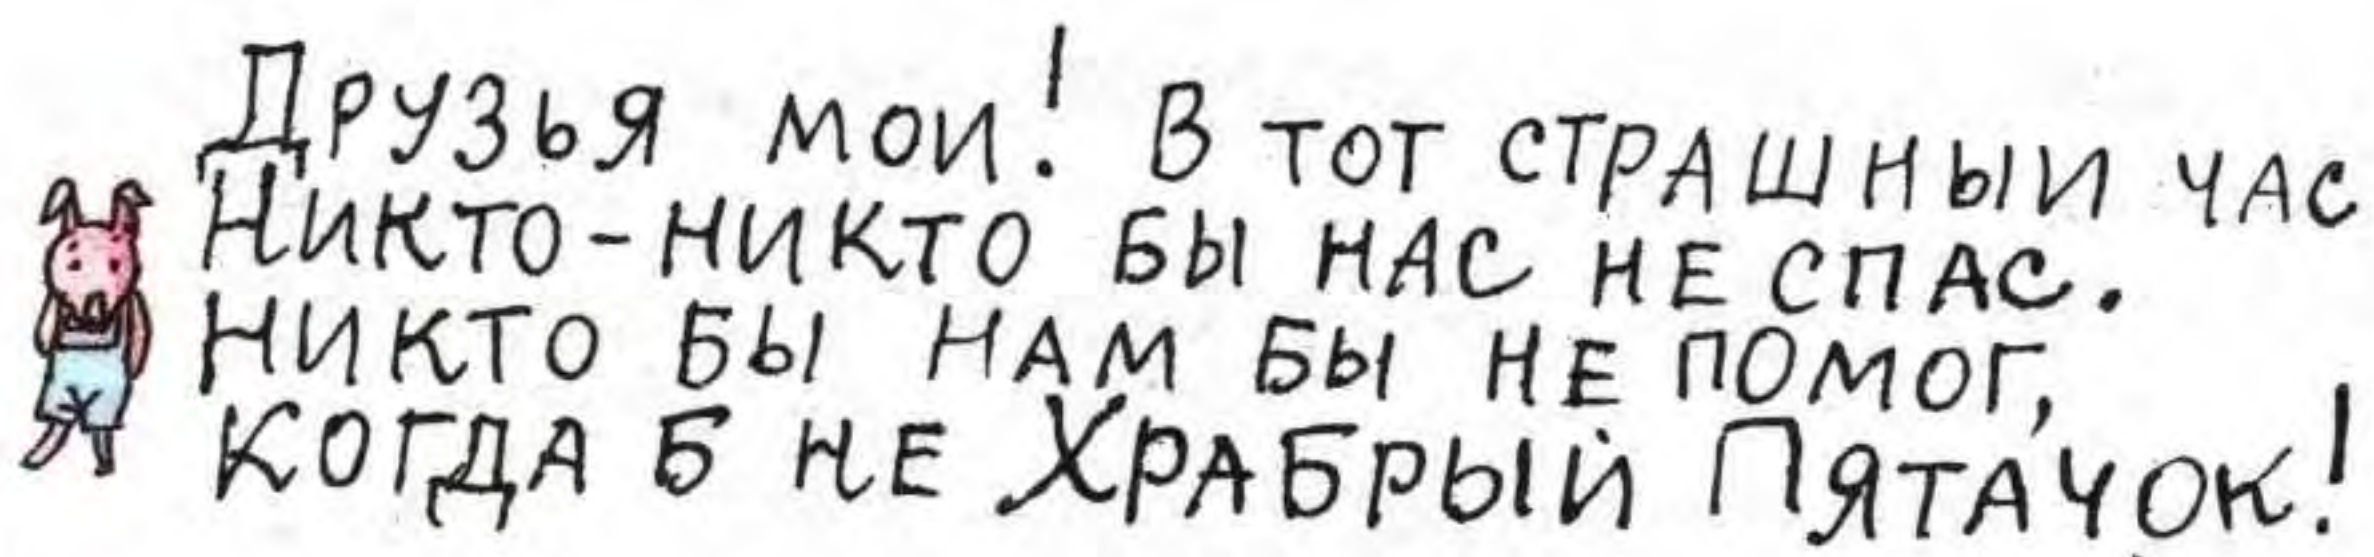 Друзья мои! В тот страшныи час
Никто-никто бы нас не спас.
Никто бы нам бы не помог,
Когда б не Храбрый Пятачок!